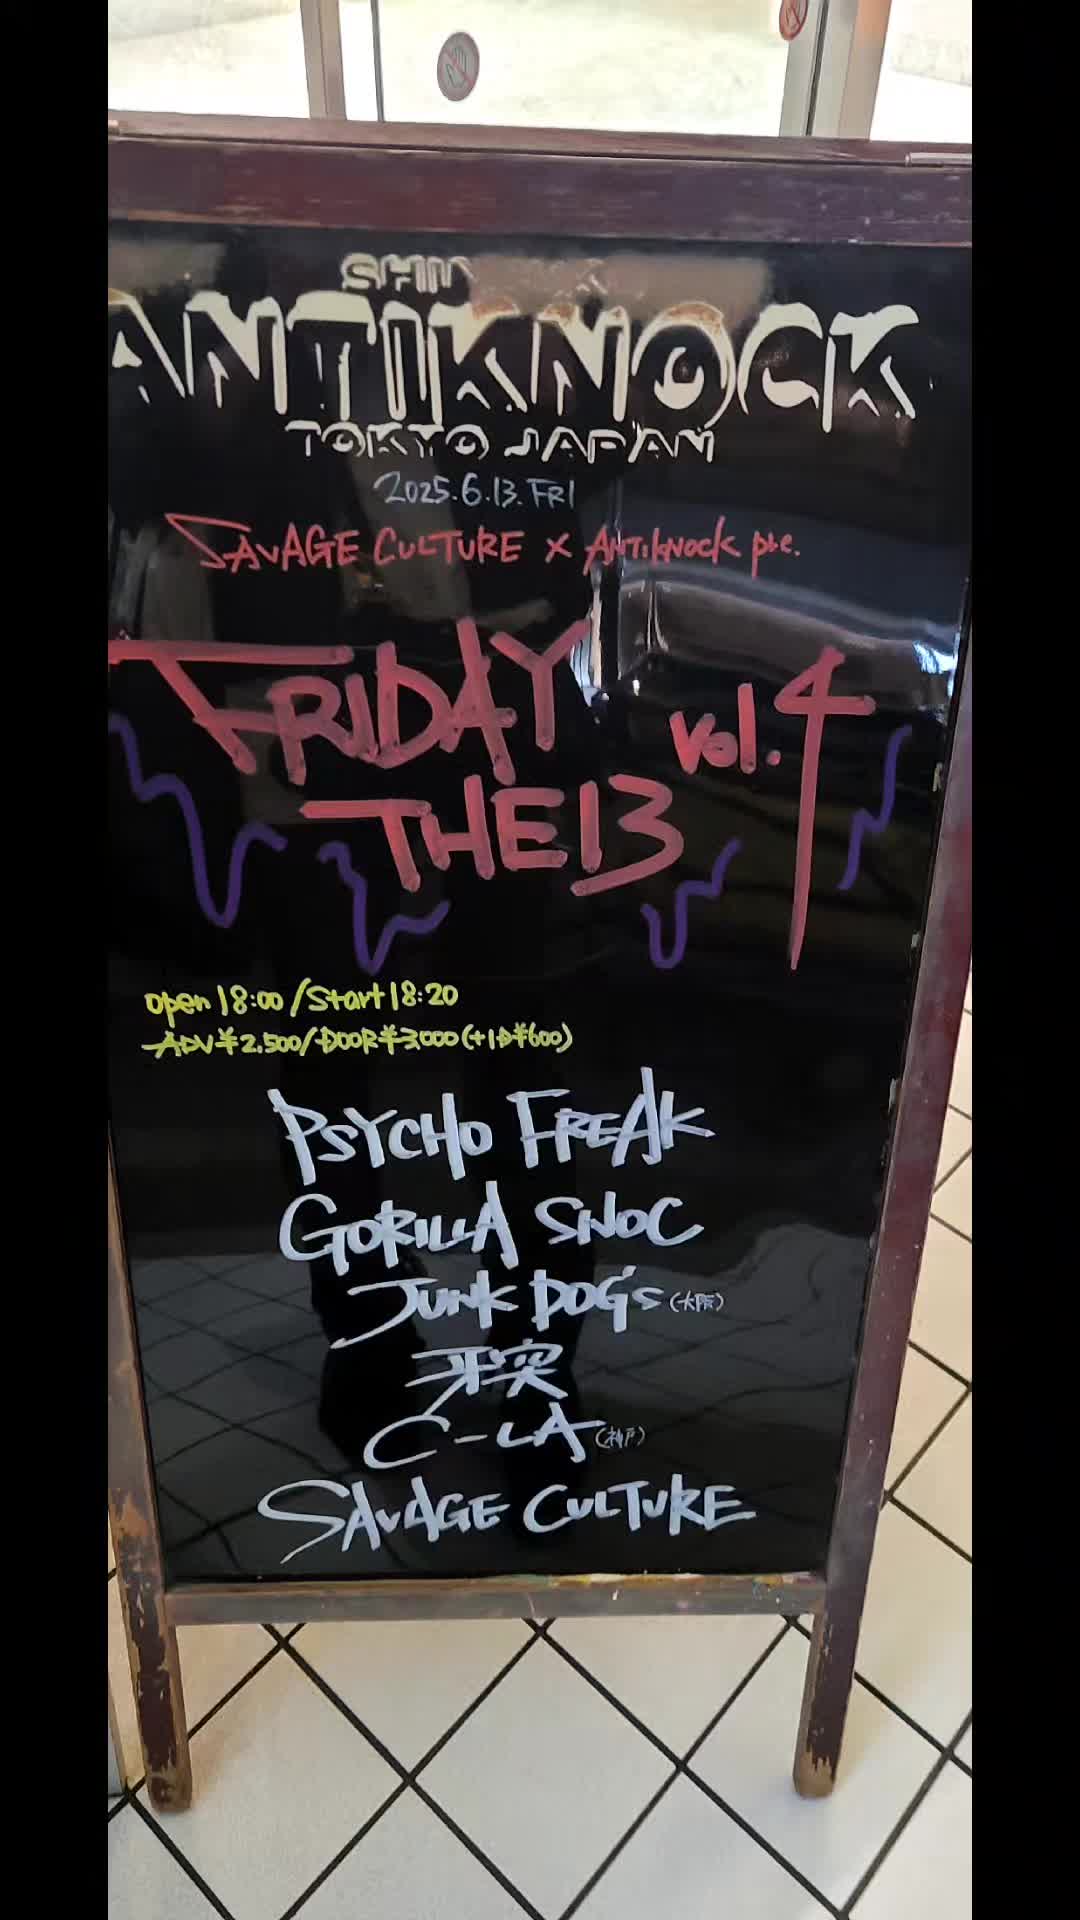 ANTIKNOCK
TOKYO JAPAN
2025.6.13.FRI
SAVAGE CULTURE × ANTiKNOCK pre.
FRIDAY
THE13 Vol.4
open 18:00/Start 18:20
ADV¥2,500/DOOR¥3,000(+1D¥600)
PSYCHO FREAK
GORILLA SNOC
JUNK DOG's (大阪)
牙突
C-LA (神戸)
SAVAGE CULTURE